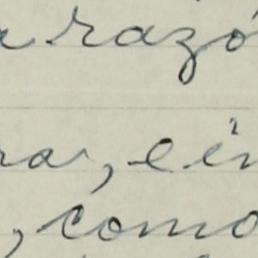 a razó
ra, e in
, como